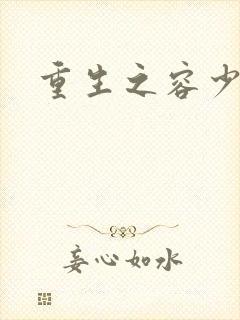 重生之容少
妾心如水